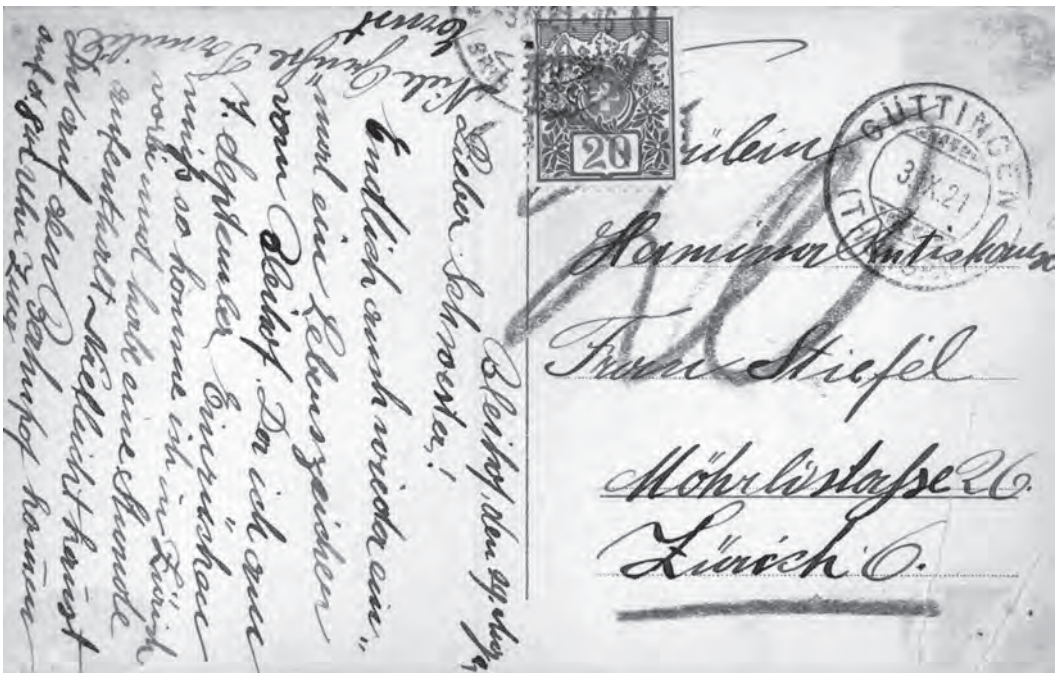 Bleihof, den
Lieber Schwester!
Endlich auch wieder ein„
mal ein Lebenszeichen
vom Bleihof. Da ich am
7. September Einrücken
muss so komme ich in Zürich
vorbei und habe eine Stunde
aufenthalt Vielleicht kannst
Du auf den Bahnhof kommen
auf 8 Uhr
Viele Grüsse Familie
20
20
GÜTTINGEN
Hermina Rutishauser
Frau Stiefel
Möhrlistasse 26.
Zürich 6.